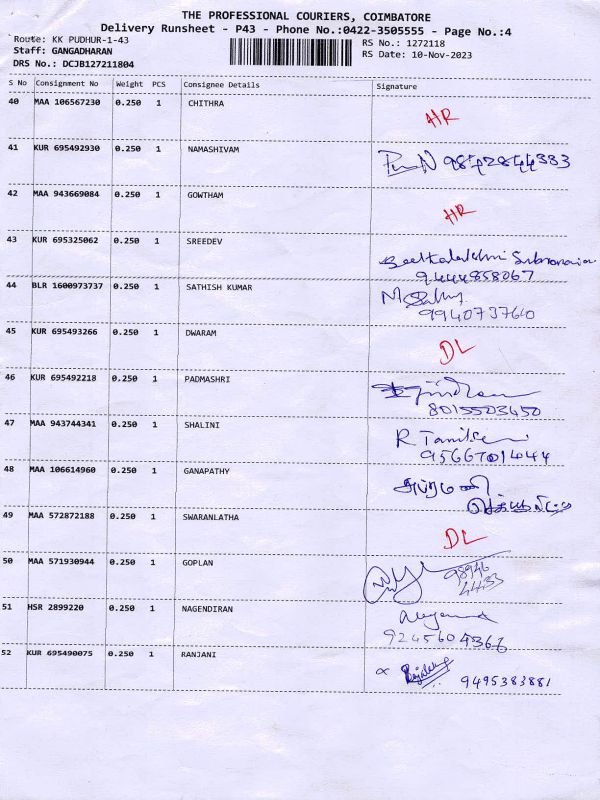 THE PROFESSIONAL COURIERS, COIMBATORE
Delivery Runsheet - P43 - Phone No.:0422-3505555 - Page No.:4
Route: KK PUDHUR-1-43
Staff: GANGADHARAN
DRS No.: DCJB127211804
RS No.: 1272118
RS Date: 10-Nov-2023
S No Consignment No Weight PCS Consignee Details Signature
40 MAA 106567230 0.250 1 CHITHRA HR
41 KUR 695492930 0.250 1 NAMASHIVAM 9842844383
42 MAA 943669084 0.250 1 GOWTHAM HR
43 KUR 695325062 0.250 1 SREEDEV
9444858067
44 BLR 1600973737 0.250 1 SATHISH KUMAR
994073760
45 KUR 695493266 0.250 1 DWARAM DL
46 KUR 695492218 0.250 1 PADMASHRI
8015503450
47 MAA 943744341 0.250 1 SHALINI
9566701444
48 MAA 106614960 0.250 1 GANAPATHY
49 MAA 572872188 0.250 1 SWARANLATHA DL
50 MAA 571930944 0.250 1 GOPLAN 98946
44133
51 HSR 2899220 0.250 1 NAGENDIRAN
9245604366
52 KUR 695490075 0.250 1 RANJANI 9495383881